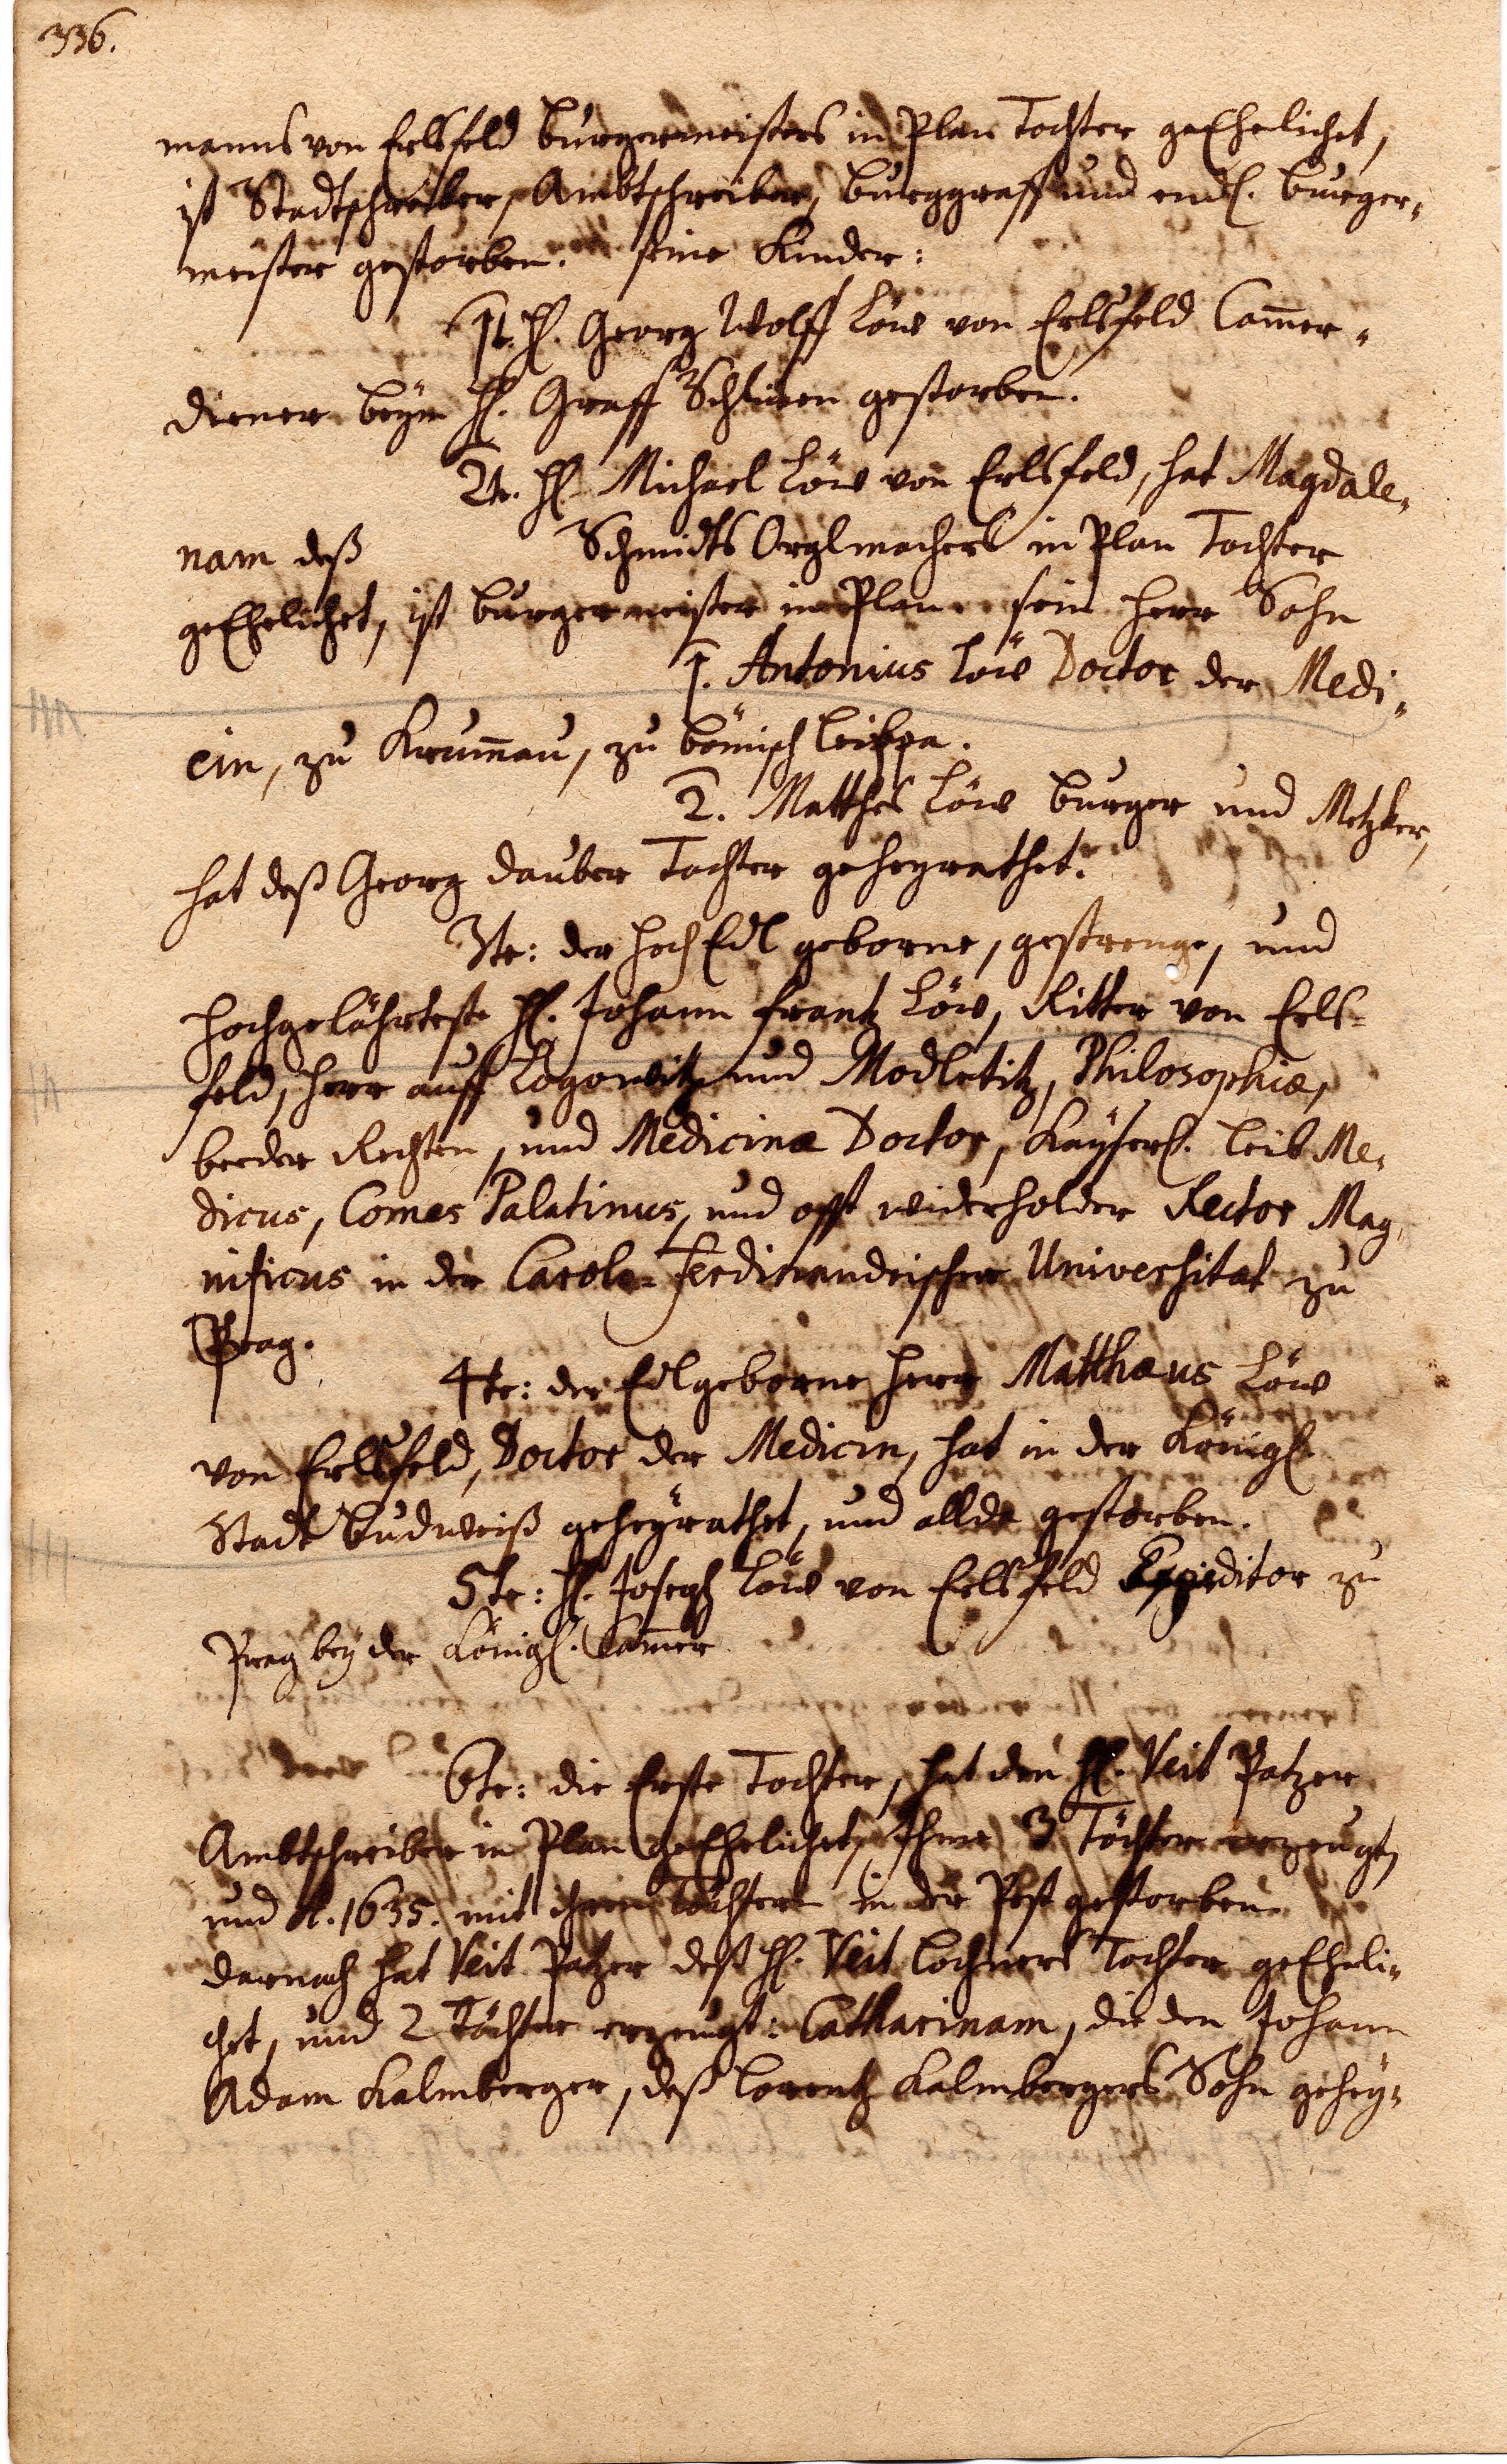 336.
manns von Erlsfeld burgermeisters in Plan Tochter geEhelichet,
ist Stadtschreiber, Ambtschreiber, burggraff und endl. burger-
meister gestorben. seine Kinder:
1t. H. Georg Wolff Löw von Erlsfeld Cam̅er-
diener beym H. Graff Schlicken gestorben.
2te. H. Michael Löw von Erlsfeld, hat Magdale-
nam deß Schmidts Orglmachers in Plan Tochter
geEhelichet, ist burgermeister in Plan. sein herr Sohn
1. Antonius Löw Doctor der Medi-
cin, zu Krum̅au, zu bömisch leippa.
2. Matthes Löw burger und Metzker,
hat deß Georg dauber Tochter geheyrathet.
3te: der hochEdl geborne, gestrenge, und
hochgelährteste H. Johann frantz Löw, Ritter von Erls-
feld, herr auff Logowitz und Modletitz, Philosophiæ,
beeder Rechten, und Medicinæ Doctor, Kayserl. leib Me-
dicus, Comes Palatinus, und offt widerholder Rector Mag-
nificus in der Carolo-Ferdinandeischen Universitat zu
Prag.
4te: der Edlgeborne herr Matthæus Löw
von Erlsfeld, Doctor der Medicin, hat in der Königl.
Stadt budweiß geheyrathet, und allda gestorben.
5te: H. Joseph Löw von Erlsfeld Expeditor zu
Prag bey der Königl. Cam̅er
6te: die Erste Tochter, hat den H. Veit Patzer
Ambtschreiber in Plan geEhelichet, Ihme 3 Töchter erzeugt,
und A. 1635. mit ihren Töchtern in der Pest gestorben.
darnach hat Veit Patzer deß H. Veit Lochners Tochter geEheli-
chet, und 2 Töchter erzeugt: Catharinam, die den Johann
Adam Kalmberger, deß Lorentz Kalmbergers Sohn gehey-